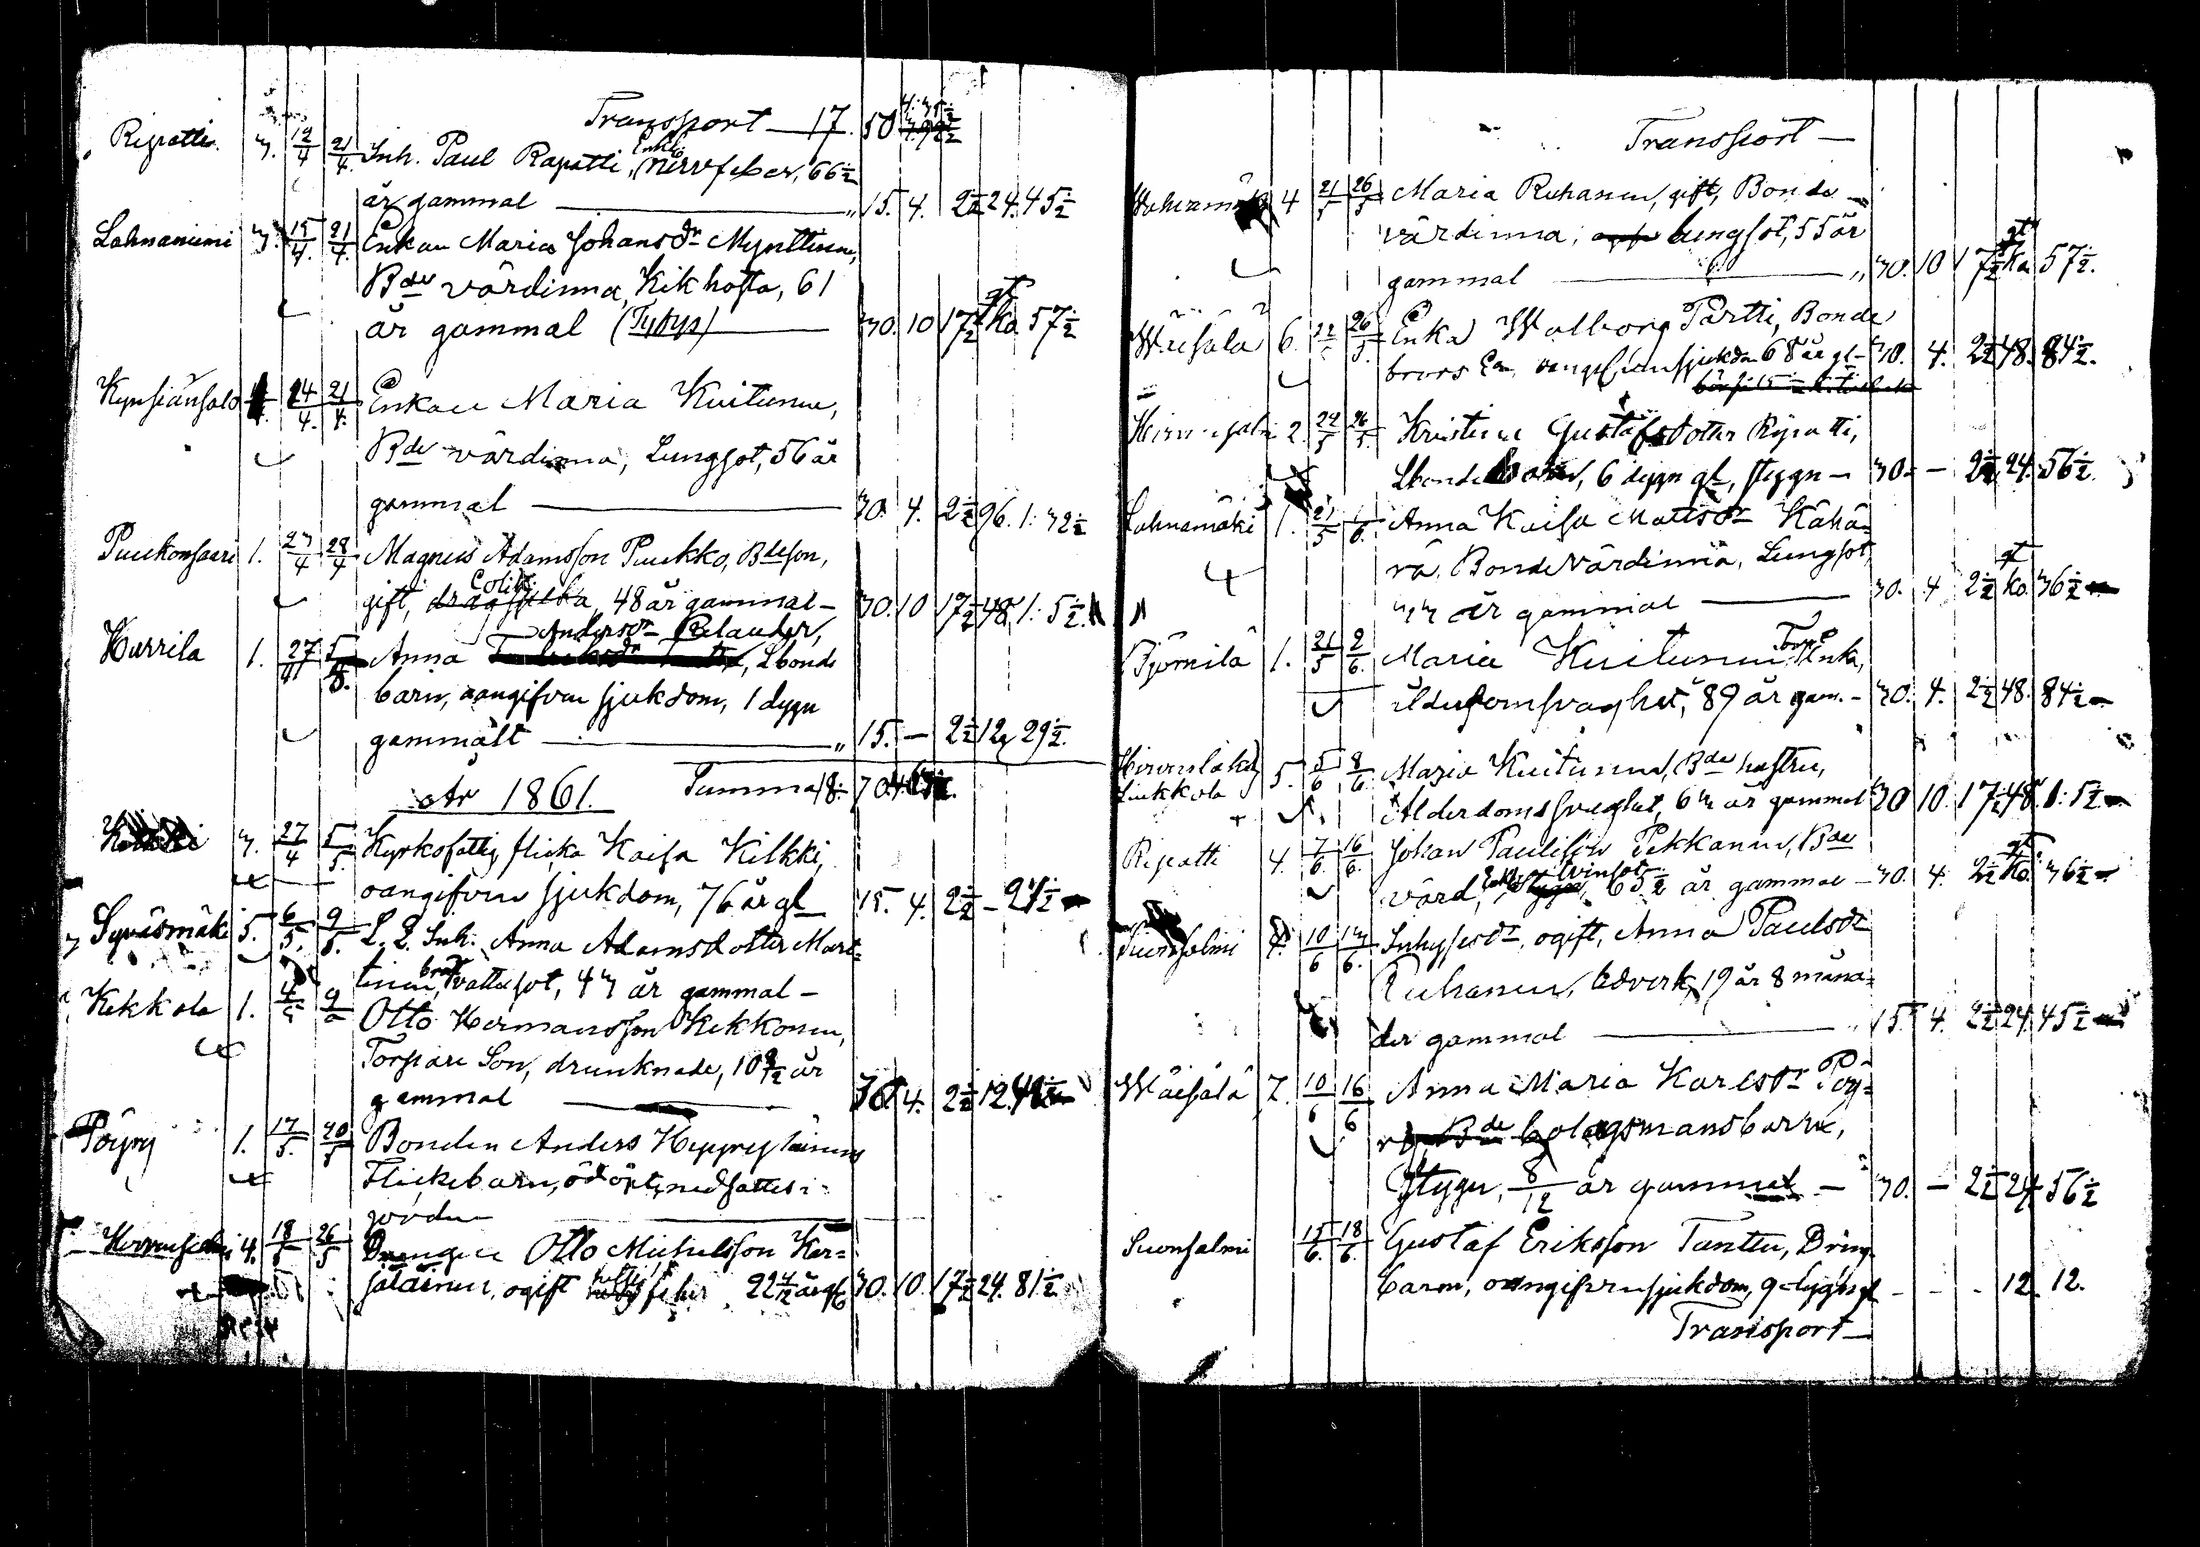 Transport — 17. 50
Ripatti. 3. 12/4 21/4 Inh. Paul Rapatti, Enkl. Nervfeber, 66½
år gammal — „ 15. 4. 2½ 24. 45½
Lahnaniemi 3. 15/4. 21/4. Enkan Maria Johansdr Mynttinen,
Bde värdinna, Kikhosta, 61
år gammal (Tyfus) — 30. 10 17½ ko. 57½
Kynsiänsalo 24/4. 21/4. Enkan Maria Kuitunen,
Bde värdinna, Lungsot, 56 år
gammal — 30. 4. 2½ 96. 1: 32½
Puukonsaari 1. 23/4 28/4 Magnus Adamsson Puukko, Bdeson,
gift, Colik 48 år gammal — 30. 10 17½ 48, 1: 5½.
Andersdr Pulander,
Hurrila 1. 27/4 5/5. Anna Lbonde
barn, oangifven sjukdom, 1 dygn
gammalt — „ 15. — 2½ 12, 29½.
År 1861. Summa 18: 70
3. 27/4 5/5. Kyrkofattig flicka Kaisa Kilkki,
oangifven sjukdom, 76 år gl 15. 4. 2½ — 21½
Syväsmäki 5. 6/5. 9/5. L. L. Inh. Anna Adamsdotter Mart=
tinen, bröst Vattusot, 43 år gammal —
Kekkola 1. Otto Hermansson Kekkonen,
Torpare Son, drunknade, 10 9/12 år
gammal — 4. 2½ 12.
Pöyry 1. 17/5. 20/5 Bonden Anders Heyryläinens
Flickebarn, odöpt, nedsattes i
jorden
Hirvensalmi 4. 18/5 26/5 Drengen Otto Michelsson Kar=
jalainen, ogift feber 22 4/12 år gl 30. 10. 17½ 24. 81½
Transport —
4 21/5 26/5 Maria Ruhanen, gift, Bonde
värdinna, lungsot, 55 år
gammal — „ 30. 10 17½ ko 57½.
Wäisälä 6. 22/5 26/5. Enka Walborg Partti, Bonde
brors En, oangifven sjukdom 68 år gl — 30. 4. 2½ 48. 84½.
Hirvensalmi 2. 22/5 26/5. Kristina Gustafsdotter Ripatti,
Lbonde barn, 6 dygn gl, stygn — 30. — 2½ 24. 56½.
Lahnamäki 1. 21/5 1/6. Anna Kaisa Mattsdr Kähä=
rä, Bonde Värdinna, Lungsot,
33 år gammal — 30. 4 2½ ko. 36½
Björnilä 1. 21/5 2/6. Maria Kuitunen, Torp. Enka,
ålderdomsvaghet, 89 år gam. — 30. 4. 2½ 48. 84½
Hirvuslaks
Liukkola 5. 5/6 8/6. Maria Kuitunen, Bde hustru,
Ålderdomssvaghet, 63 år gammal 30 10. 17½ 48. 1: 5½
Ripatti 4. 7/6. 16/6. Johan Paulsson Pekkanen, Bde
värd, 65½ år gammal — 30. 4. 2½ ko. 36½
Suonsalmi 10/6 13/6. Inhysesdr, ogift, Anna Paulsdr
Ruhanen, ledverk, 19 år 8 måna=
der gammal — 15. 4. 2½ 24. 45½
Wäisälä 7. 10/6 16/6 Anna Maria Karlsdr Pöy=
ry, bolagsmansbarn,
Stygn, 8/12 år gammal — 30. — 2½ 24. 56½
Suonsalmi 15/6. 18/6. Gustaf Eriksson Tanttu, Dräng
barn, oangifven sjukdom, 9 dygn gl - - - 12. 12.
Transport —